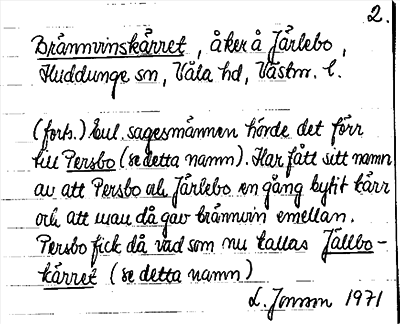 2.
Brännvinskärret, åker å Järlebo,
Huddunge sn, Våla hd, Västm. l.
(forts.) Enl. sagesmännen hörde det förr
till Persbo (se detta namn). Har fått sitt namn
av att Persbo och Järlebo en gång bytit kärr
och att man då gav brännvin emellan.
Persbo fick då vad som nu kallas Jällbo-
kärret (se detta namn)
L. Jonson 1971